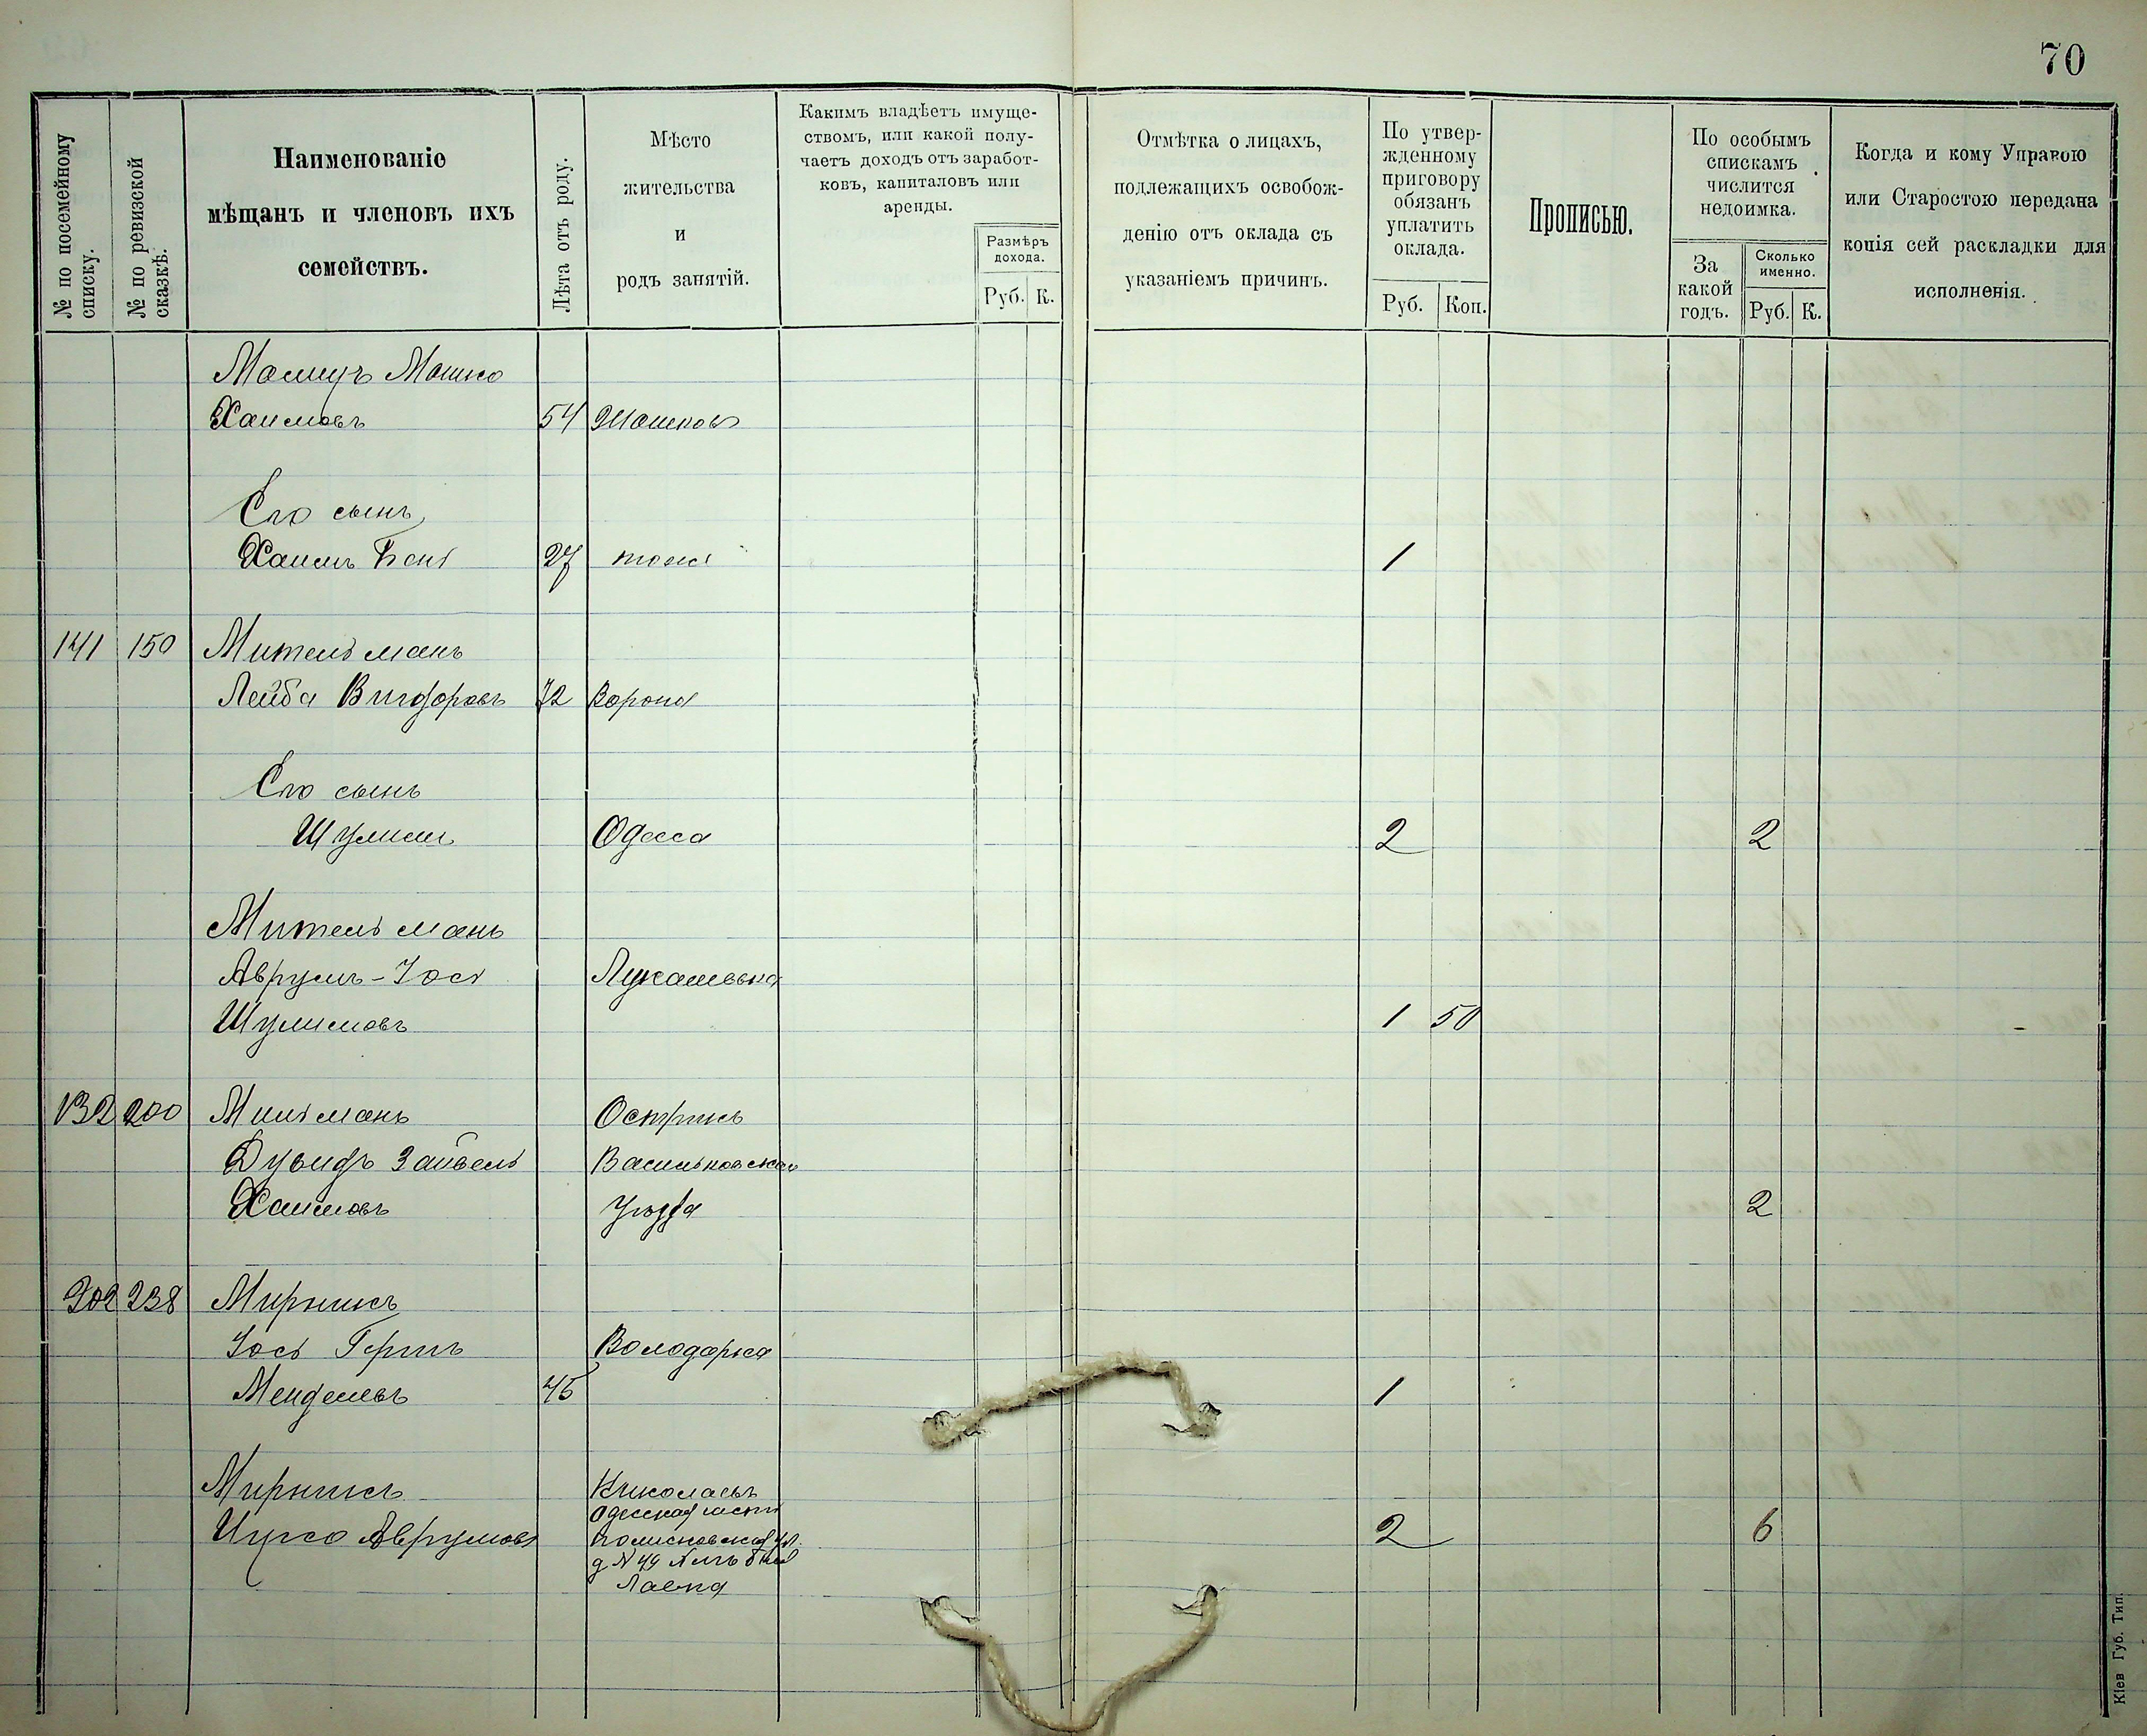 70
№ по посемейному списку.
№ по ревизской сказкѣ.
Наименованіе
мѣщанъ и членовъ ихъ
семействъ.
Лѣта отъ роду.
Мѣсто
жительства
и
родъ занятій.
Какимъ владѣетъ имуще-
ствомъ, или какой полу-
чаетъ доходъ отъ заработ-
ковъ, капиталовъ или
аренды.
Размѣръ
дохода.
Руб. К.
Отмѣтка о лицахъ,
подлежащихъ освобож-
денію отъ оклада съ
указаніемъ причинъ.
По утвер-
жденному
приговору
обязанъ
уплатить
оклада.
Руб. Коп.
Прописью.
По особымъ
спискамъ
числится
недоимка.
За
какой
годъ.
Сколько
именно.
Руб. К.
Когда и кому Управою
или Старостою передана
копія сей раскладки для
исполненія.
Мошко
Хаимовъ 54
Его сынъ
Хаимъ 27 тоже 1
141 150 Мительманъ
Лейба Вигдоровъ 72 Ворона
Его сынъ
Шулимъ Одесса 2 2
Мительманъ
Аврумъ-Іось Лукашевка
Шулимовъ 1 50
132 200 Мильманъ
Дувидъ Зайвель Васильковскаго
Хаимовъ уѣзда 2
302 238 Мирнисъ
Іось Гершъ Володарка
Менделевъ 45 1
Мирнисъ Николаевъ
Одесская
Аврумовъ 2 6
Лавка
Кіев Губ. Тип.